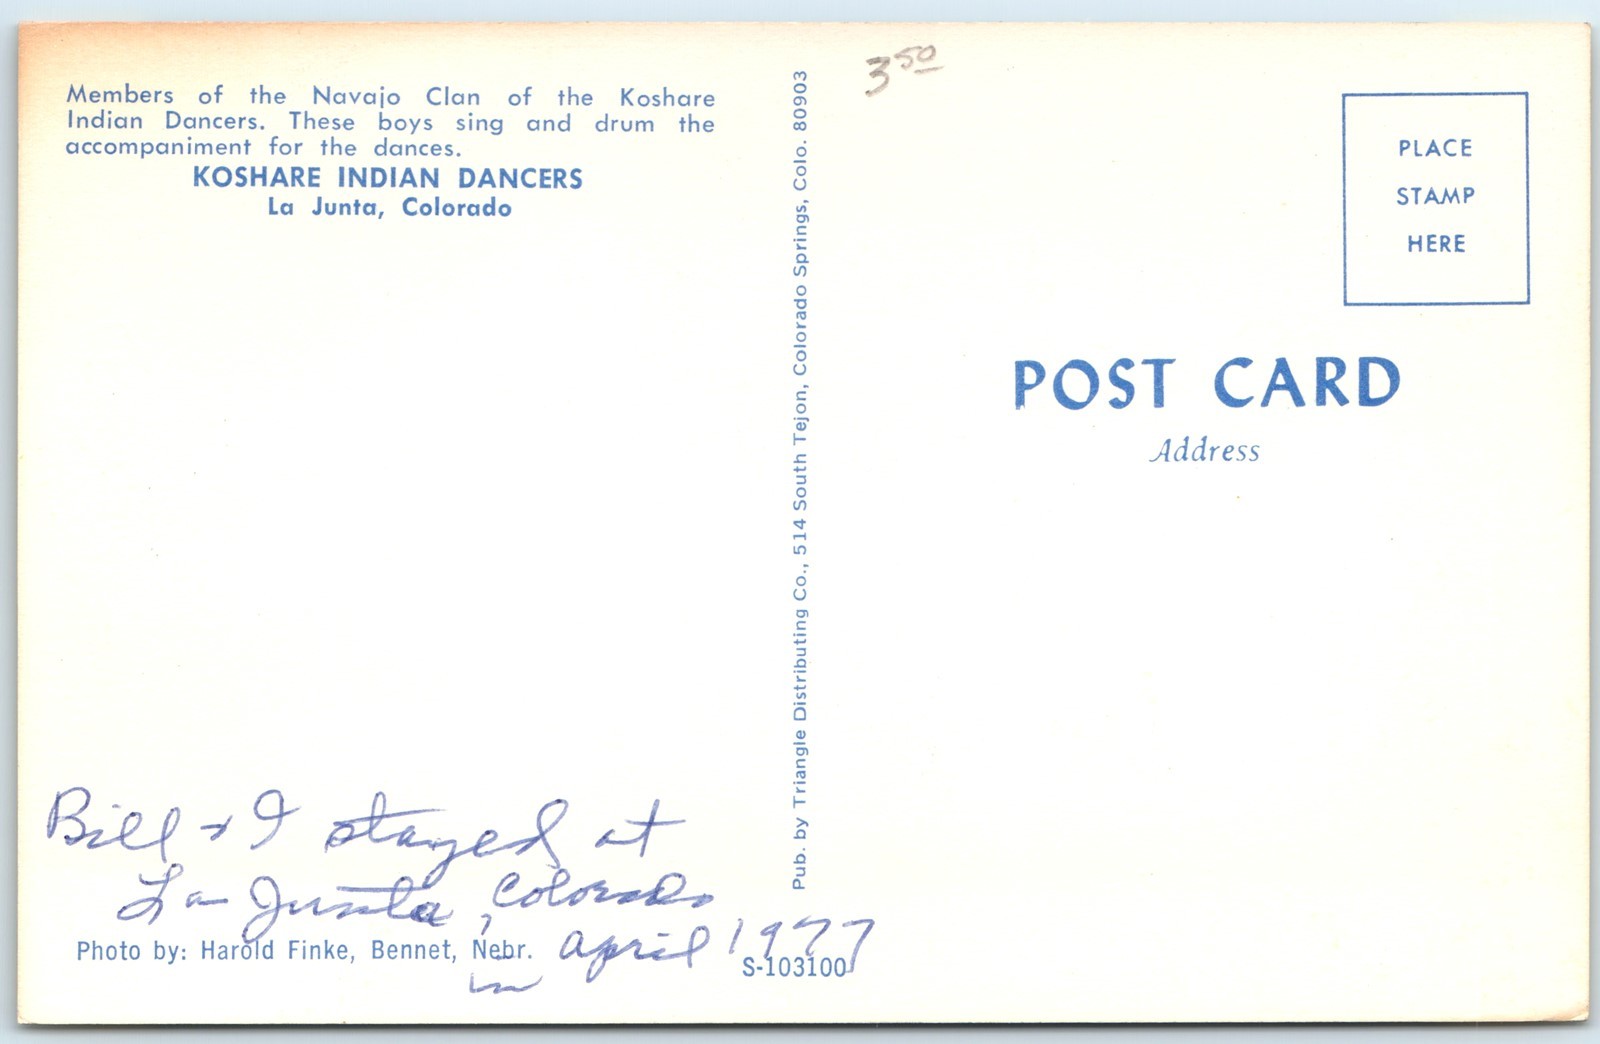 Members of the Navajo Clan of the Koshare
Indian Dancers. These boys sing and drum the
accompaniment for the dances.
KOSHARE INDIAN DANCERS
La Junta, Colorado
Bill & I stayed at
La Junta, Colorado
in April 1977
Photo by: Harold Finke, Bennet, Nebr.
S-103100
Pub. by Triangle Distributing Co., 514 South Tejon, Colorado Springs, Colo. 80903
3 50
PLACE
STAMP
HERE
POST CARD
Address